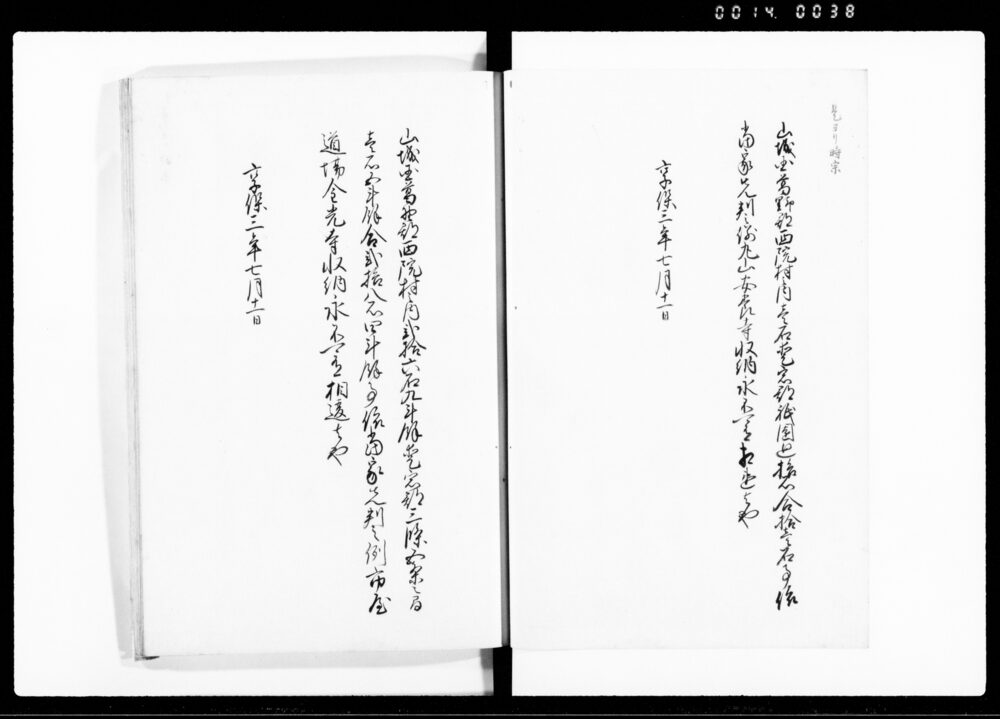 0014 0038
是ヨリ時宗
山城国葛野郡西院村内壱石愛宕郡祇園辺拾石合拾壱石事依
当家先判之例丸山安養寺収納永不可有相違者也
享保三年七月十一日
山城国葛野郡西院村内弐拾六石九斗余愛宕郡三条
壱石五斗余合弐拾八石四斗余事依当家先判之例市屋
道場金光寺収納永不可有相違者也
享保三年七月十一日